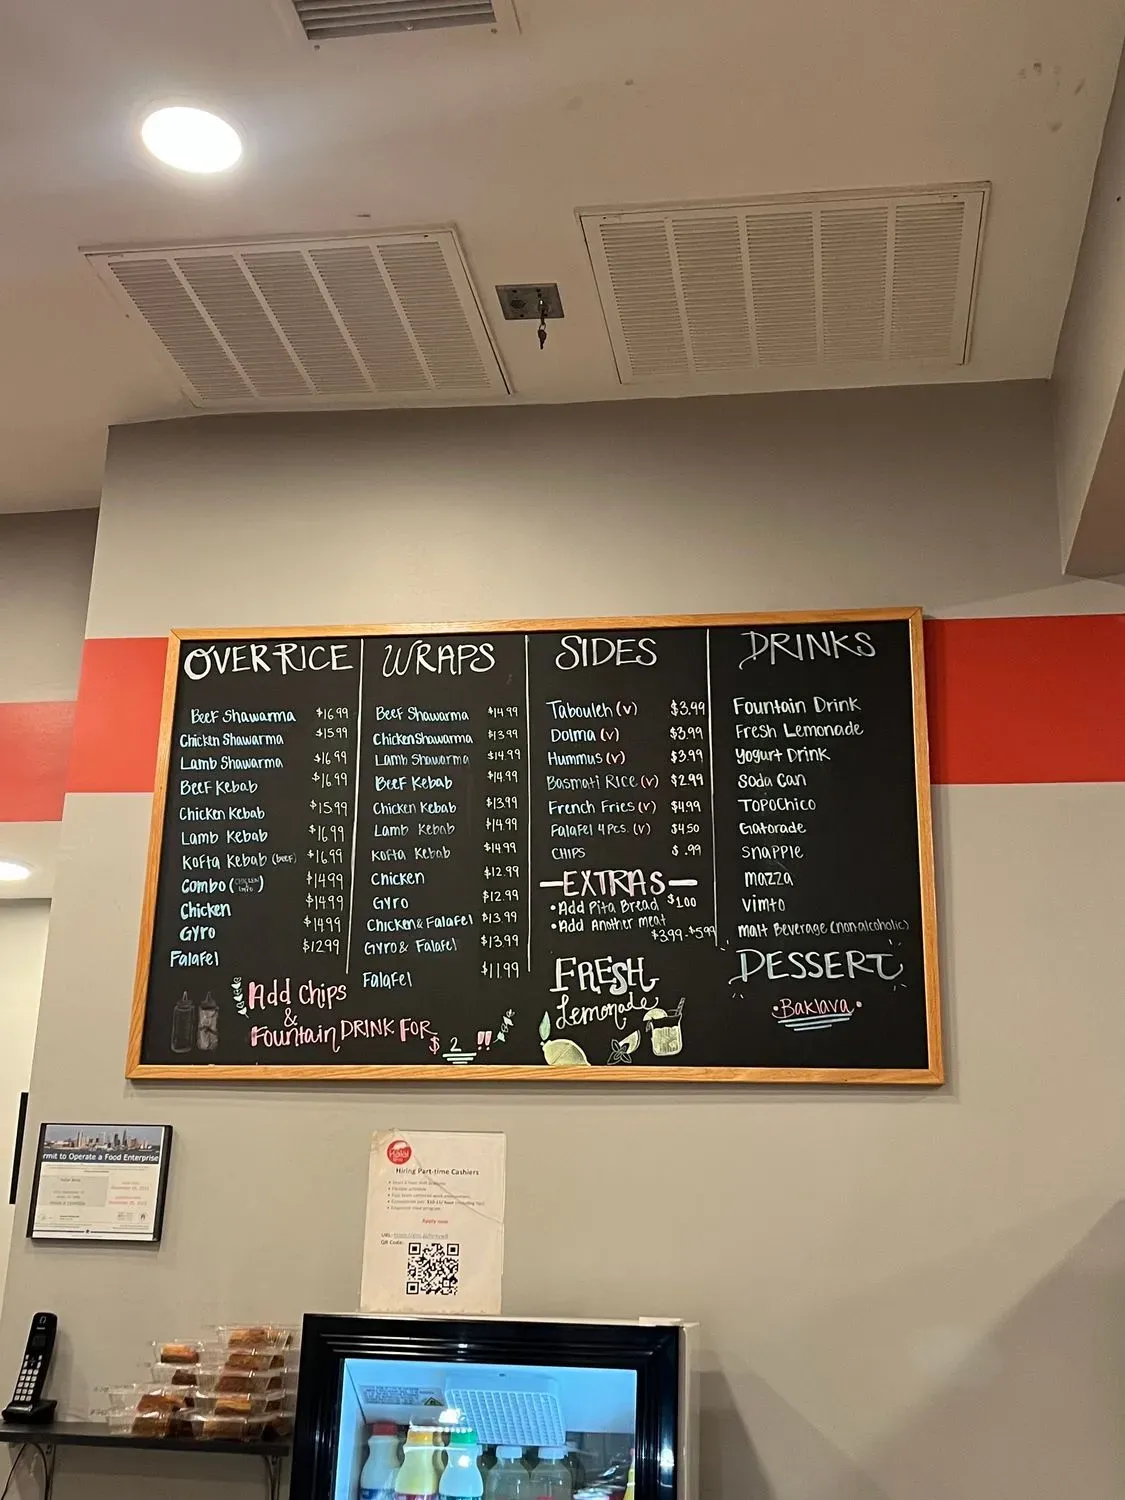 OVER RICE
Beef Shawarma $16.99
Chicken Shawarma $15.99
Lamb Shawarma $16.99
Beef Kebab $16.99
Chicken Kebab $15.99
Lamb Kebab $16.99
Kofta Kebab (beef) $16.99
Combo (Chicken $14.99
Chicken $14.99
Gyro $14.99
Falafel $12.99
Add Chips
&
Fountain DRINK FOR
$2 !!
WRAPS
Beef Shawarma $14.99
Chicken Shawarma $13.99
Lamb Shawarma $14.99
Beef Kebab $14.99
Chicken Kebab $13.99
Lamb Kebab $14.99
Kofta Kebab $14.99
Chicken $12.99
Gyro $12.99
Chicken & Falafel $13.99
Gyro & Falafel $13.99
Falafel $11.99
SIDES
Tabouleh (v) $3.99
Dolma (v) $3.99
Hummus (v) $3.99
Basmati Rice (v) $2.99
French Fries (v) $4.99
Falafel 4 pcs. (v) $4.50
CHIPS $.99
EXTRAS
• Add Pita Bread $1.00
• Add Another meat
$3.99-$5.99
FRESH
Lemonade
DRINKS
Fountain Drink
Fresh Lemonade
Yogurt Drink
Soda Can
TOPOCHICO
Gatorade
SNAPPLE
mazza
vimto
malt Beverage (nonalcoholic)
DESSERT
• Baklava •
rmit to Operate a Food Enterprise
Halal
Hiring Part-time Cashiers
Apply now
URL:
QR Code: